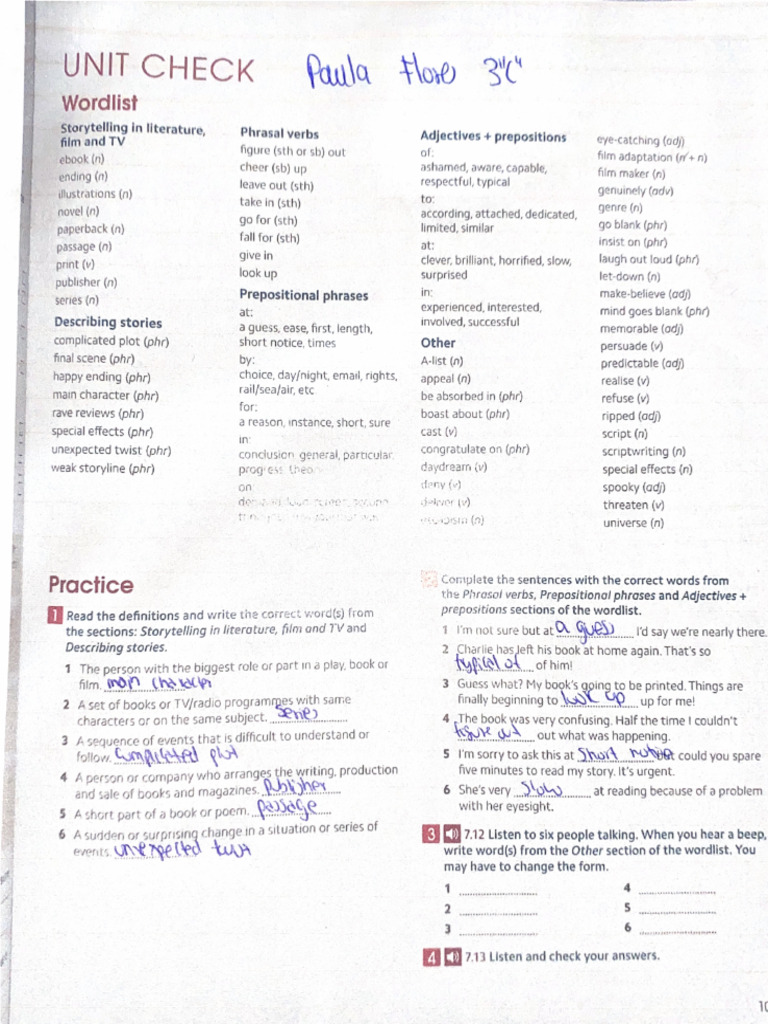 UNIT CHECK Paula Flores 3"C"
Wordlist
Storytelling in literature,
film and TV
ebook (n)
ending (n)
illustrations (n)
novel (n)
paperback (n)
passage (n)
print (v)
publisher (n)
series (n)
Describing stories
complicated plot (phr)
final scene (phr)
happy ending (phr)
main character (phr)
rave reviews (phr)
special effects (phr)
unexpected twist (phr)
weak storyline (phr)
Phrasal verbs
figure (sth or sb) out
cheer (sb) up
leave out (sth)
take in (sth)
go for (sth)
fall for (sth)
give in
look up
Prepositional phrases
at:
a guess, ease, first, length,
short notice, times
by:
choice, day/night, email, rights,
rail/sea/air, etc
for:
a reason, instance, short, sure
in:
conclusion, general, particular,
progress, theory
on:
Adjectives + prepositions
of:
ashamed, aware, capable,
respectful, typical
to:
according, attached, dedicated,
limited, similar
at:
clever, brilliant, horrified, slow,
surprised
in:
experienced, interested,
involved, successful
Other
A-list (n)
appeal (n)
be absorbed in (phr)
boast about (phr)
cast (v)
congratulate on (phr)
daydream (v)
deny (v)
deliver (v)
escapism (n)
eye-catching (adj)
film adaptation (n + n)
film maker (n)
genuinely (adv)
genre (n)
go blank (phr)
insist on (phr)
laugh out loud (phr)
let-down (n)
make-believe (adj)
mind goes blank (phr)
memorable (adj)
persuade (v)
predictable (adj)
realise (v)
refuse (v)
ripped (adj)
script (n)
scriptwriting (n)
special effects (n)
spooky (adj)
threaten (v)
universe (n)
Practice
1 Read the definitions and write the correct word(s) from
the sections: Storytelling in literature, film and TV and
Describing stories.
1 The person with the biggest role or part in a play, book or
film. main character
2 A set of books or TV/radio programmes with same
characters or on the same subject. series
3 A sequence of events that is difficult to understand or
follow. complicated plot
4 A person or company who arranges the writing, production
and sale of books and magazines. Publisher
5 A short part of a book or poem. passage
6 A sudden or surprising change in a situation or series of
events. unexpected twist
2 Complete the sentences with the correct words from
the Phrasal verbs, Prepositional phrases and Adjectives +
prepositions sections of the wordlist.
1 I'm not sure but at a guess I'd say we're nearly there.
2 Charlie has left his book at home again. That's so
typical of of him!
3 Guess what? My book's going to be printed. Things are
finally beginning to look up up for me!
4 The book was very confusing. Half the time I couldn't
figure out out what was happening.
5 I'm sorry to ask this at short notice but could you spare
five minutes to read my story. It's urgent.
6 She's very slow at reading because of a problem
with her eyesight.
3 7.12 Listen to six people talking. When you hear a beep,
write word(s) from the Other section of the wordlist. You
may have to change the form.
1 4
2 5
3 6
4 7.13 Listen and check your answers.
10